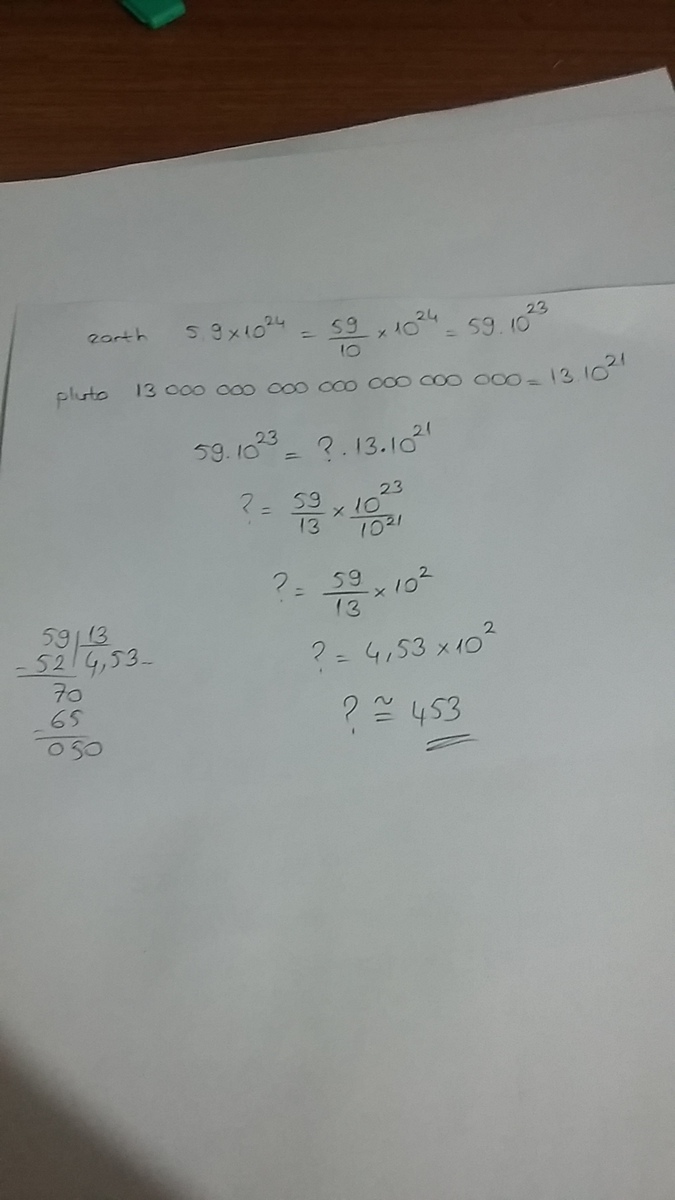 earth 5.9×10²⁴ = 59/10 ×10²⁴ = 59.10²³
pluto 13 000 000 000 000 000 000 000 = 13.10²¹
59.10²³ = ? . 13.10²¹
? = 59/13 × 10²³/10²¹
? = 59/13 × 10²
? = 4,53 × 10²
? ≅ 453
59 | 13
-52 | 4,53-
70
-65
050